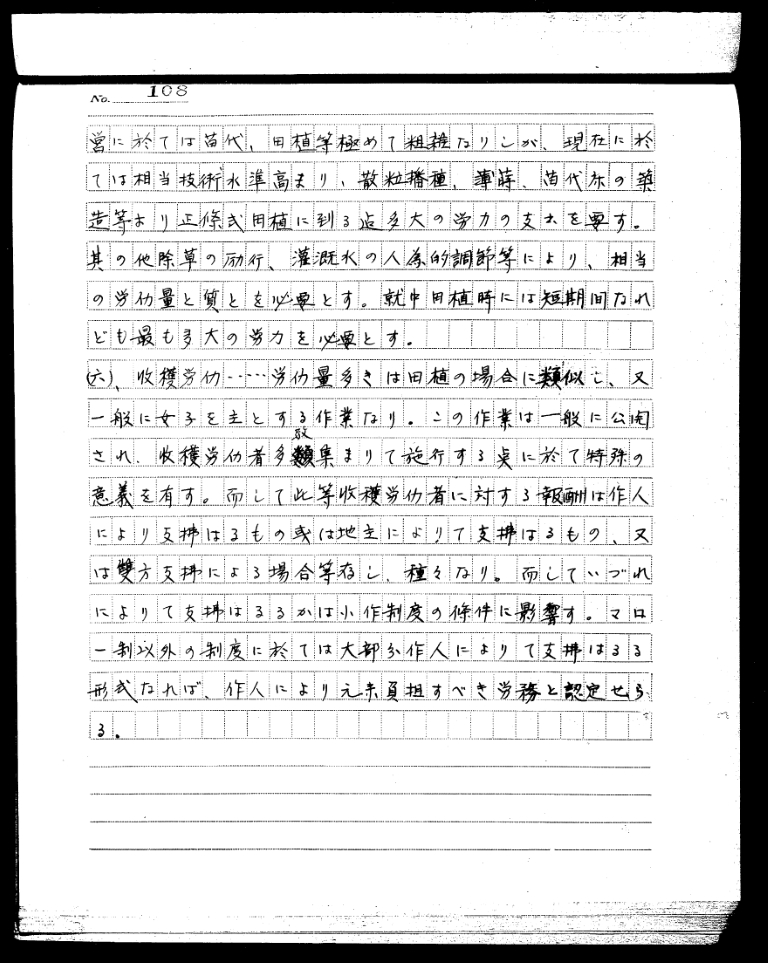 No. 108
営に於ては苗代、田植等極めて粗雑なりしが、現在に於
ては相当技術水準高まり、散粒播種、薄蒔、苗代床の築
造等より正條式田植に到る迄多大の労力の支出を要す。
其の他除草の励行、灌漑水の人為的調節等により、相当
の労働量と質とを必要とす。就中田植時には短期間なれ
ども最も多大の労力を必要とす。
(六)、収穫労働……労働量多きは田植の場合に類似し、又
一般に女子を主とする作業なり。この作業は一般に公開
され、収穫労働者多数集まりて施行する点に於て特殊の
意義を有す。而して此等収穫労働者に対する報酬は作人
により支拂はるもの或は地主によりて支拂はるもの、又
は雙方支拂による場合等存し、種々なり。而していづれ
によりて支拂はるるかは小作制度の條件に影響す。マロ
ー制以外の制度に於ては大部分作人によりて支拂はるる
形式なれば、作人により元来負担すべき労務と認定せら
る。